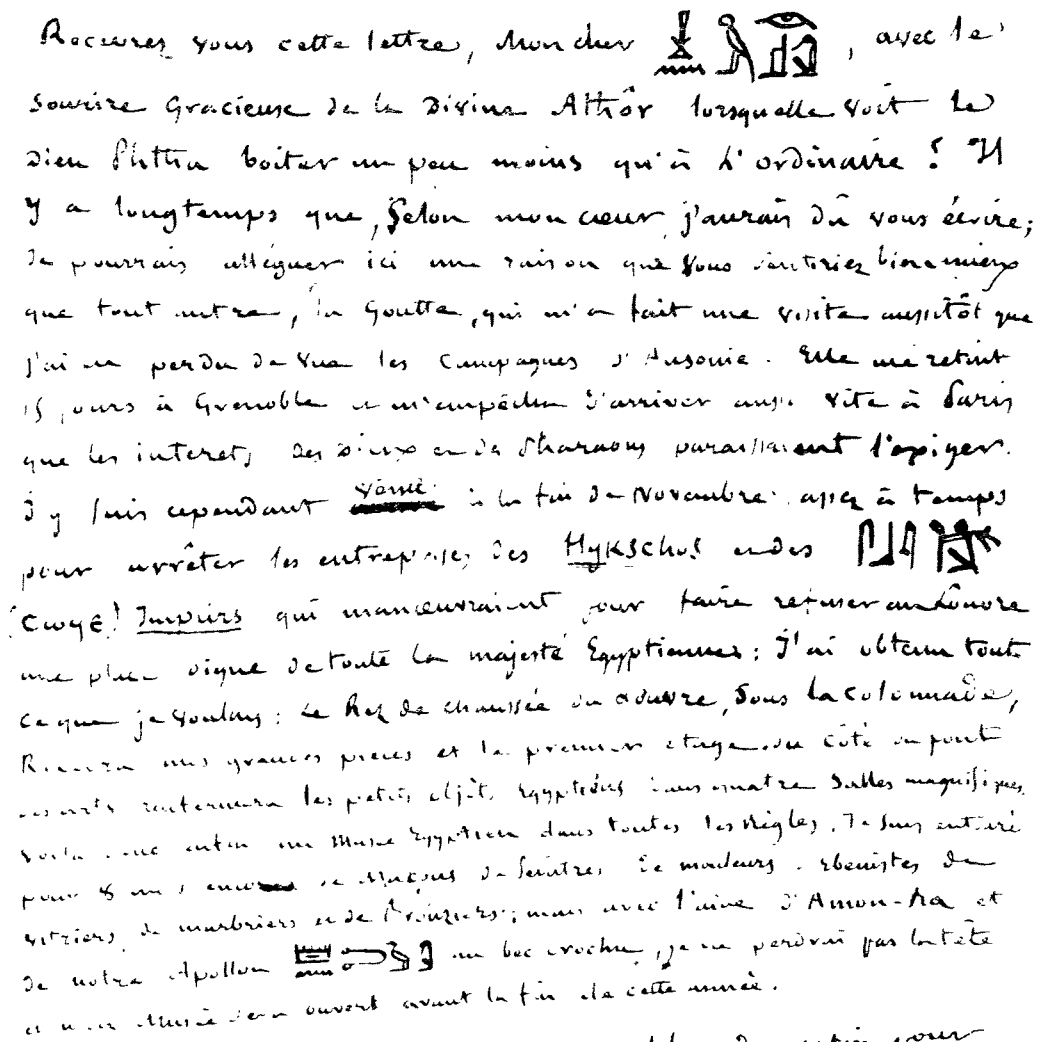 Recevrez vous cette lettre, Mon cher , avec le
Sourire Gracieuse de la Divine Athôr lorsquelle voit le
Dieu Phtha boiter un peu moins qu'à L'ordinaire ? Il
y a longtemps que, Selon mon cœur, j'aurais dû vous écrire;
Je pourrais alléguer ici une raison que vous sentiriez bien mieux
que tout autre, la Goutte, qui m'a fait une visite aussitôt que
j'ai eu perdu de vue les Campagnes d'Ausonie. Elle me retint
15 jours à Grenoble et m'empêcha d'arriver aussi vite à Paris
que les interets des Dieux et de Pharaons paraissaient l'exiger.
J'y suis cependant venu à la fin de Novembre: assez à temps
pour arrêter les entreprises des Hykschos et des
(CWOYE) Impurs qui manœuvraient pour faire refuser au Louvre
une place digne de toute la majesté Egyptienne; J'ai obtenu tout
ce que je voulais: Le Rez de chaussée du Louvre, Sous la colonnade,
Recevra mes grandes pieces et le premier etage du côté du pont
des arts renfermera les petits objets Egyptiens dans quatre Salles magnifiques.
Voila donc enfin un Musée Egyptien dans toutes les Règles. Je suis entouré
pour 8 mois encore de Maçons de Peintres de modeurs. Ebenistes de
vitriers, de marbriers et de Bronziers; mais avec l'aide d'Amon-Ra et
de notre Apollon au bec crochu, je ne perdrai pas la tête
et mon Musée sera ouvert avant la fin de cette année.
pour